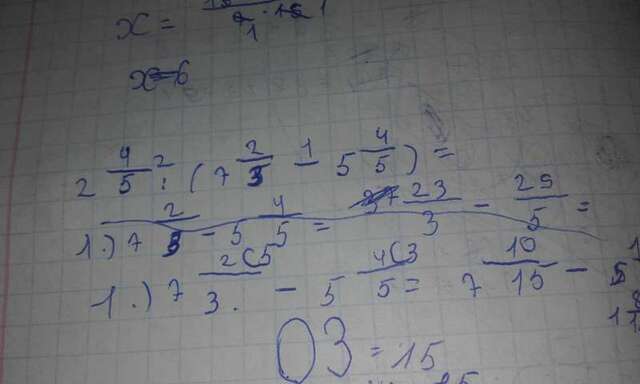 x =
x=6
2 4/5 2 : ( 7 2/3 1 - 5 4/5 ) =
1.) 7 2/3 - 5 4/5 = 23/3 - 29/5 =
1.) 7 2(5/3. - 5 4(3/5 = 7 10/15 - 5
03 = 15